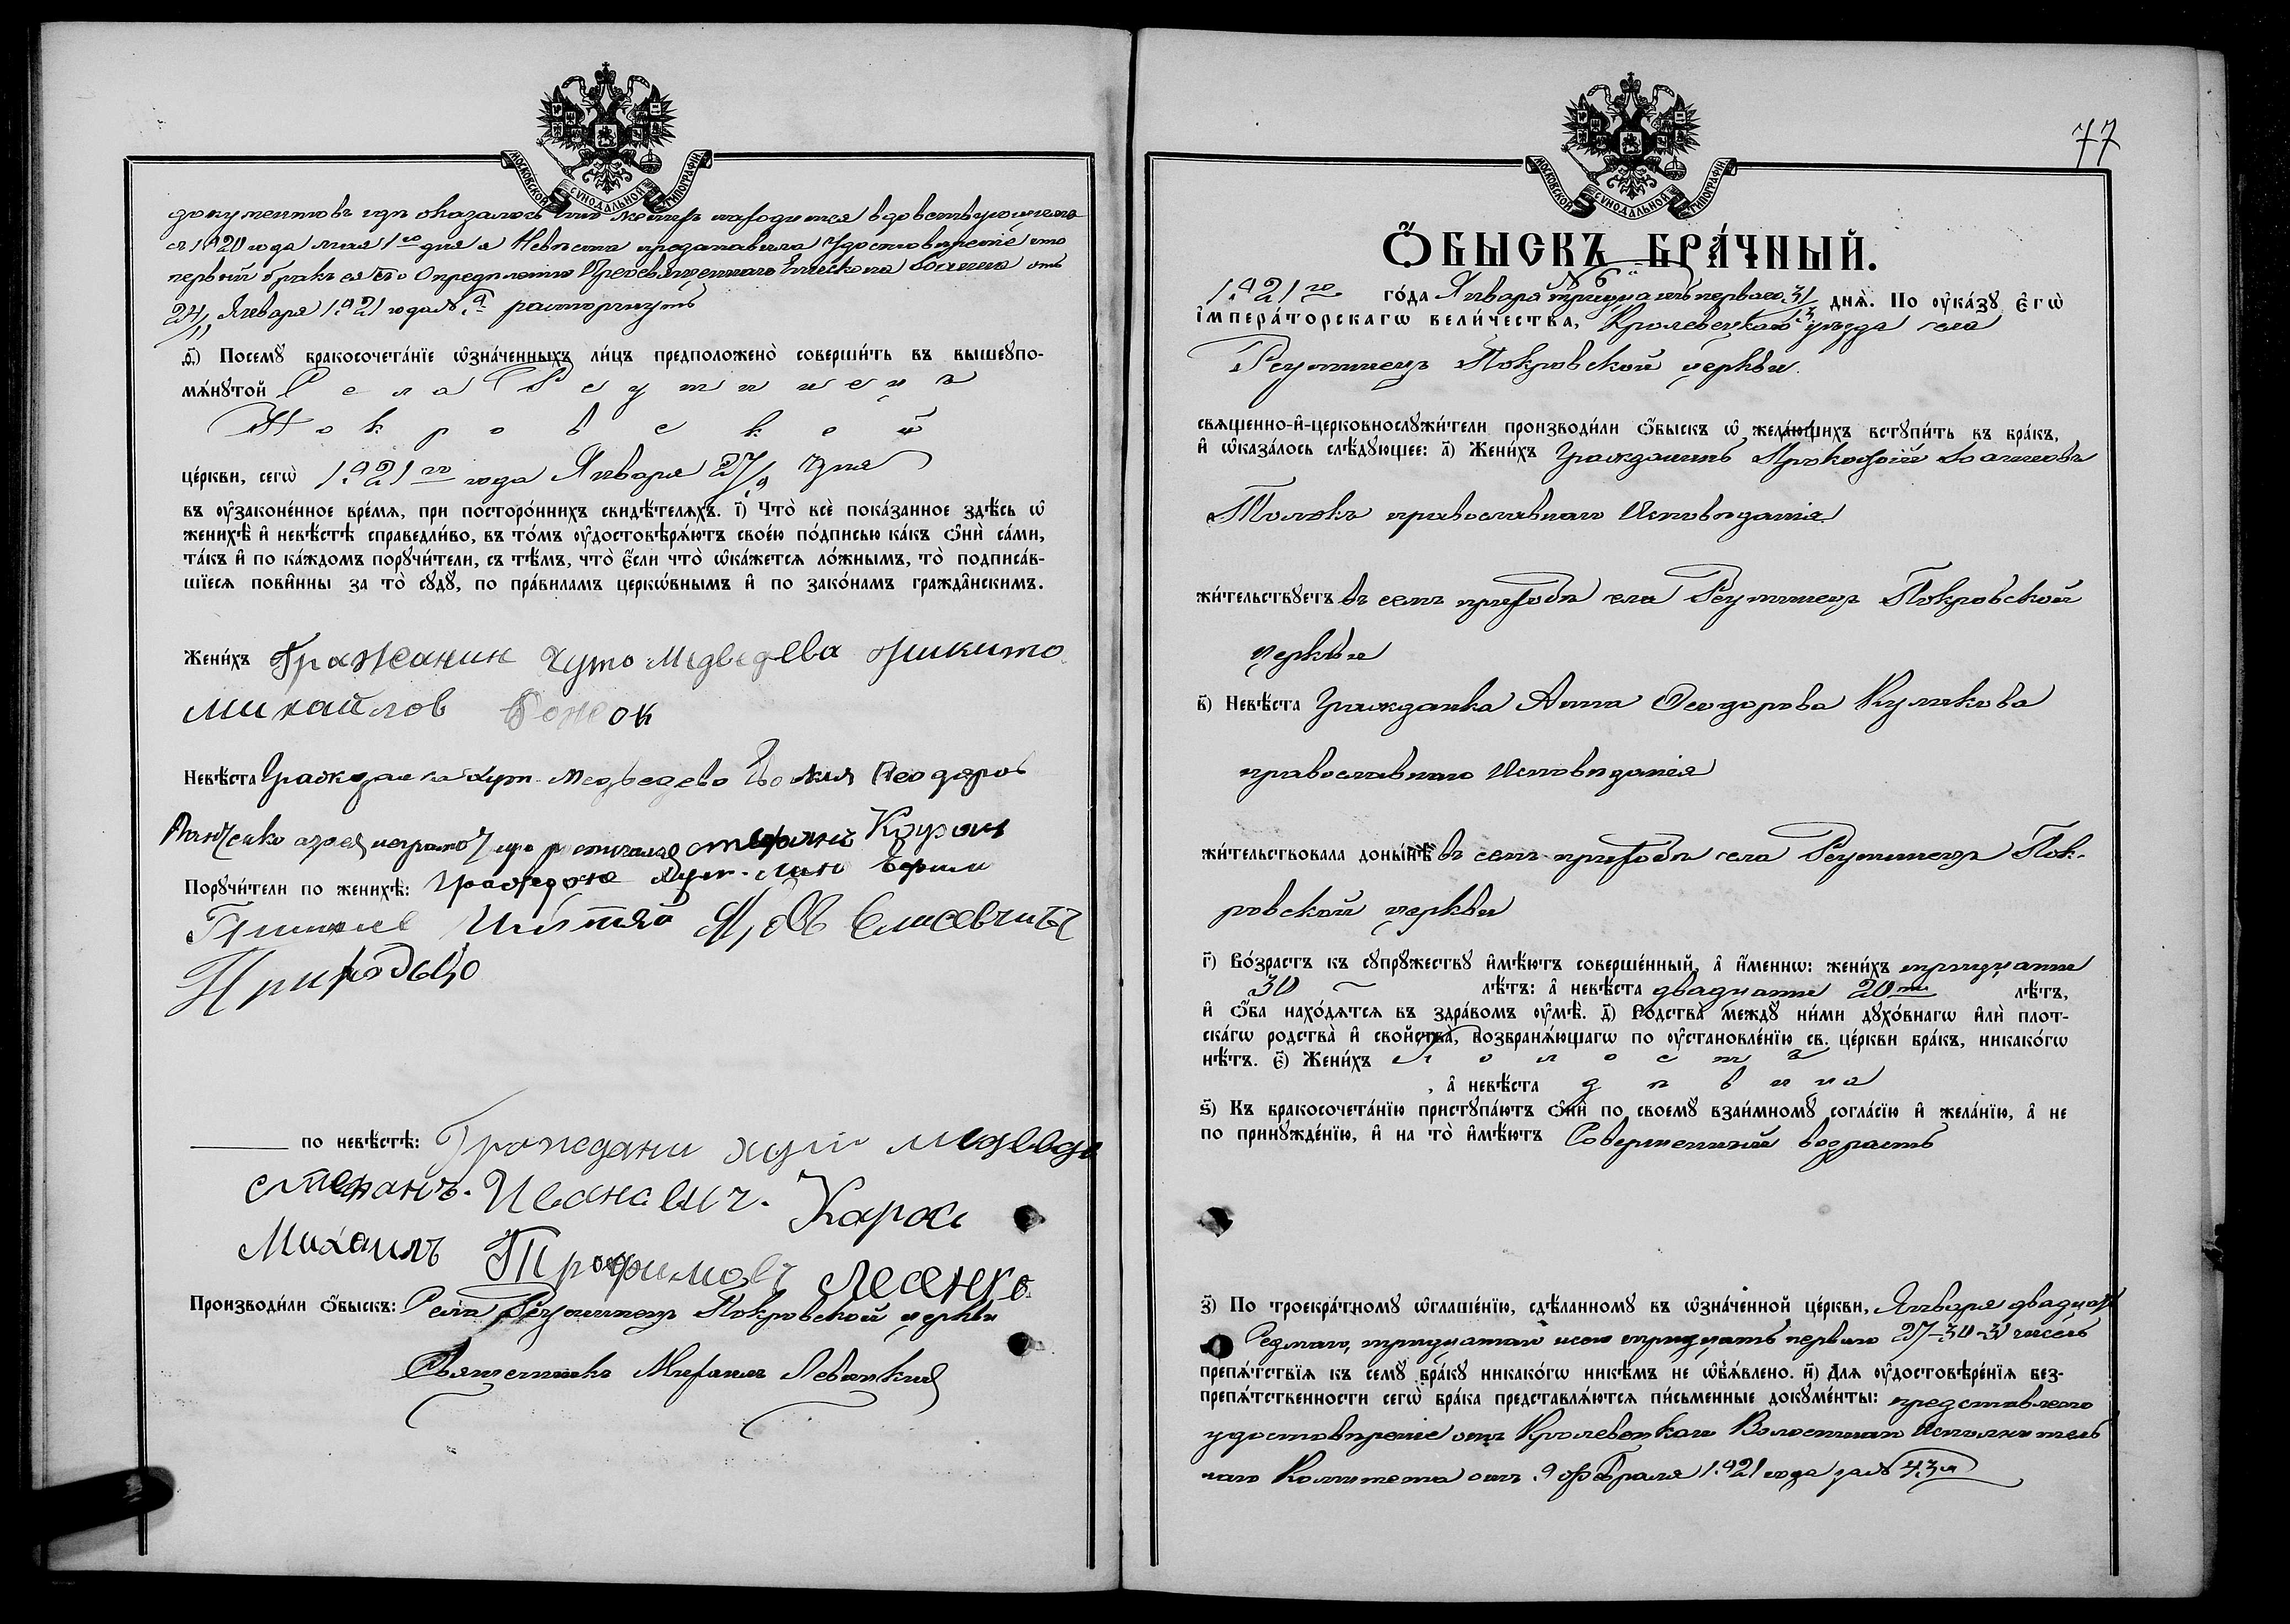 МОСКОВСКОЙ СѴНОДАЛЬНОЙ ТИПОГРАФІИ
документовъ гдѣ оказалось что женихъ находится вдовствующимъ
съ 1920 года мая 1го дня а Невѣста представила Удостовѣреніе что
первый бракъ ея по Опредѣленію Преосвященнаго Епископа отъ
24/11 Января 1921 года № расторгнутъ
д҃) Посемꙋ̀ бракосочета́нїе ѡ҆зна́ченныхъ ли́цъ предположено̀ соверши́ть въ вышеꙋпо-
мѧ́нꙋтой Села Реутинецъ
Покровской
це́ркви, сегѡ̀ 1921го года Января 27/9 дня
въ ᲂу҆законе́нное вре́мѧ, при посторо́ннихъ свидѣ́телѧхъ. і҃) Что̀ всѐ пока́занное здѣ́сь ѡ҆
женихѣ̀ и҆ невѣ́стѣ справедли́во, въ то́мъ ᲂу҆достовѣрѧ́ютъ свое́ю по́дписью ка́къ ѻ҆нѝ са́ми,
та́къ и҆ по ка́ждомъ порꙋчи́тели, съ тѣ́мъ, что̀ є҆́сли что̀ ѡ҆ка́жетсѧ ло́жнымъ, то̀ подписа́в-
шїесѧ пови́нны за то̀ сꙋдꙋ̀, по пра́виламъ церкѡ́внымъ и҆ по зако́намъ гражда́нскимъ.
Жени́хъ Гражеанин Хуто Медведева Никито
михайлов
Невѣ́ста Гражданка Хут. Медведево Феодоров
неграмот стефанъ
Порꙋчи́тели по женихѣ̀: Граждоне Хут.
Елисевичъ
Приходько
по невѣ́стѣ: Грожедани хут медведе
степанъ. Иванавич. Карась
Михаилъ Трофимовъ лесенко
Производи́ли ѻ҆́быскъ: Села Реутинецъ Покровской церкви
Священникъ Михаилъ Левитскій
77
МОСКОВСКОЙ СѴНОДАЛЬНОЙ ТИПОГРАФІИ
Ѻ҆́БЫСКЪ БРА́ЧНЫЙ.
№ 6
1921го го́да Января тридцать перваго 31/13 днѧ̀. По ᲂу҆ка́зꙋ Є҆гѡ̀
І҆мпера́торскагѡ вели́чества, Кролевецкаго уѣзда села
Реутинецъ Покровской церкви
свѧще́нно-и҆-церковнослꙋжи́тели производи́ли ѻ҆́быскъ ѡ҆ жела́ющихъ встꙋпи́ть въ бра́къ,
и҆ ѡ҆каза́лось слѣ́дꙋющее: а҃) Жени́хъ Гражданинъ Прокофій Іоанновъ
православнаго Исповѣданія
жи́тельствꙋетъ въ семъ приходѣ села Реутинецъ Покровской
церкви
в҃) Невѣ́ста Гражданка Анна Ѳеодорова Куликова
православнаго Исповѣданія
жи́тельствовала доны́нѣ въ семъ приходѣ села Реутинецъ Пок-
ровской церкви
г҃) Во́зрастъ къ сꙋпрꙋ́жествꙋ и҆мѣ́ютъ соверше́нный, а҆ и҆́меннѡ: жени́хъ тридцати
30 лѣ́тъ: а҆ невѣ́ста двадцати 20ти лѣ́тъ,
и҆ ѻ҆́ба нахо́дѧтсѧ въ здра́вомъ ᲂу҆мѣ̀. д҃) Родства̀ междꙋ̀ ни́ми дꙋхо́внагѡ и҆лѝ плот-
ска́гѡ родства̀ и҆ свойства̀, возбранѧ́ющагѡ по ᲂу҆становле́нїю св. це́ркви бра́къ, никако́гѡ
нѣ́тъ. є҃) Жени́хъ Холостъ
, а҆ невѣ́ста дѣвица
ѕ҃) Къ бракосочета́нїю пристꙋпа́ютъ ѻ҆нѝ по своемꙋ̀ взаи́мномꙋ согла́сїю и҆ жела́нїю, а҆ не
по принꙋжде́нїю, и҆ на то̀ и҆мѣ́ютъ Совершенный возрастъ
з҃) По троекра́тномꙋ ѡ҆глаше́нїю, сдѣ́ланномꙋ въ ѡ҆зна́ченной це́ркви, Января двадцать
Седмаго, тридцатаго и тридцать перваго 27-30-31 чиселъ
препѧ́тствїѧ къ семꙋ̀ бра́кꙋ никако́гѡ никѣ́мъ не ѡ҆б̾ѧ́влено. и҃) Длѧ ᲂу҆достовѣре́нїѧ без-
препѧ́тственности сегѡ̀ бра́ка представлѧ́ютсѧ пи́сьменные докꙋме́нты: представлено
удостовѣреніе отъ Кролевецкаго Волостнаго Исполнитель
наго Комитета отъ 9 февраля 1921 года за №